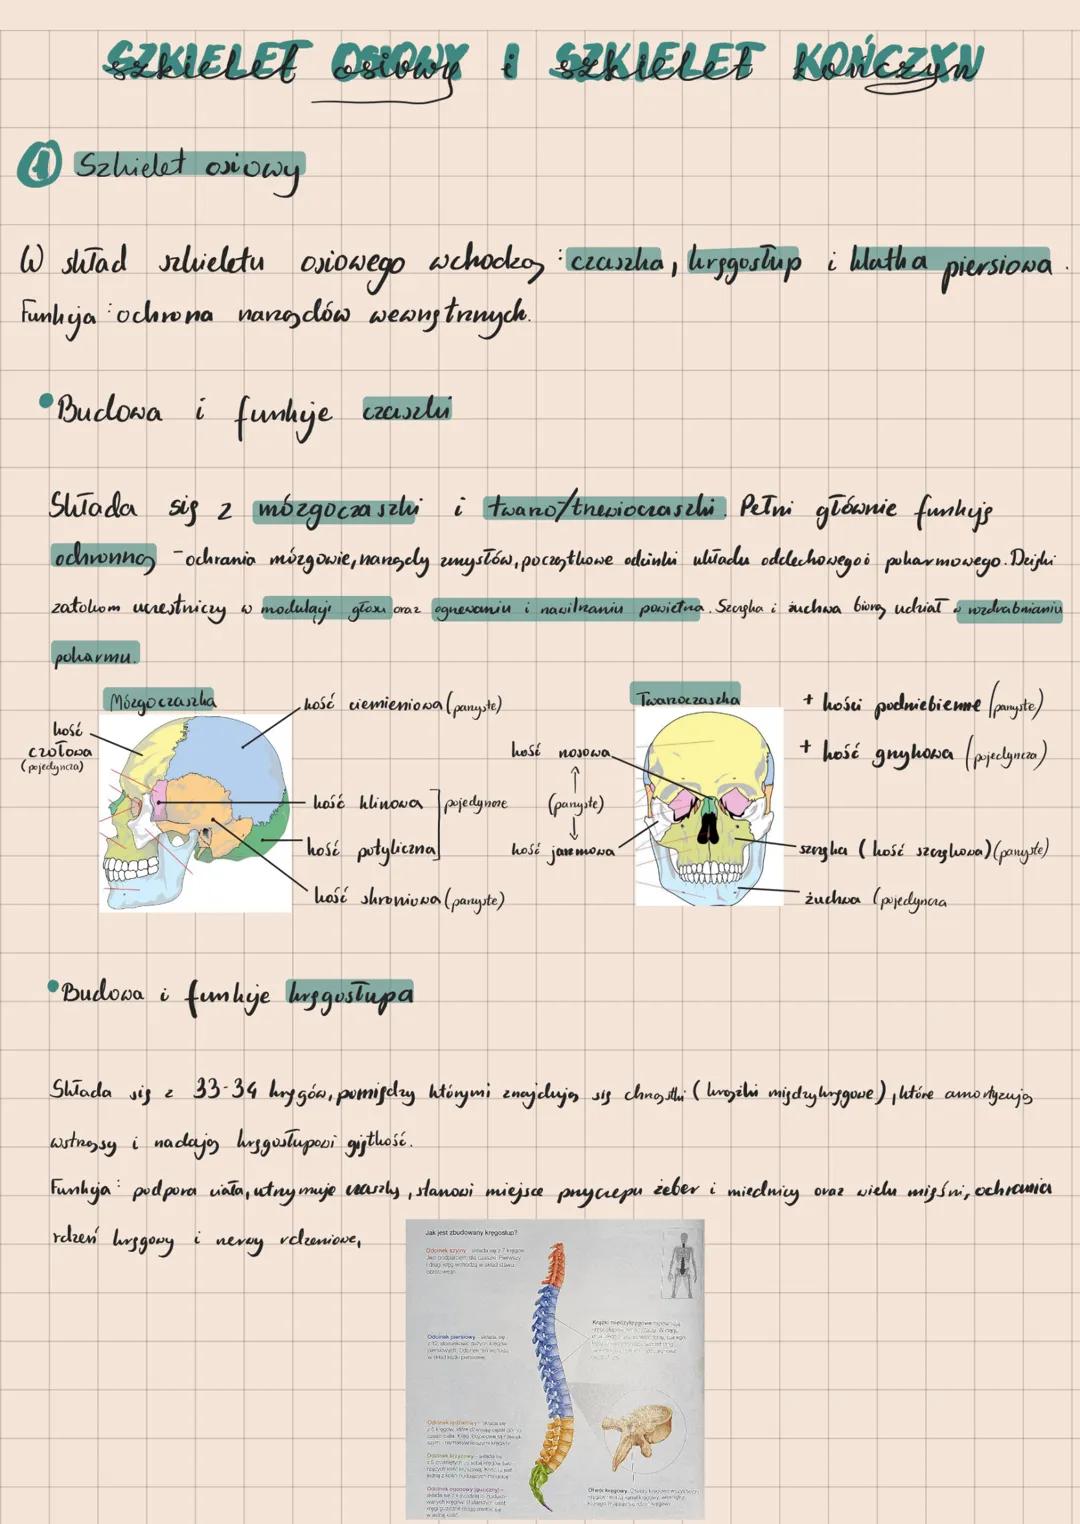 SZKIELET OSIOWY i SZKIELET KOŃCZYN
szkielet osiowy i szkielet kończyn
1 Szkielet osiowy
W skład szkieletu osiowego wchodzą: czaszka, kręgosłup i klatka piersiowa.
Funkcja: ochrona narządów wewnętrznych.
•Budowa i funkcje czaszki
Składa się z mózgoczaszki i twarzo/trzewioczaszki. Pełni głównie funkcję
ochronną - ochrania mózgowie, narządy zmysłów, początkowe odcinki układu oddechowego i pokarmowego. Dzięki
zatokom uczestniczy w modulacji głosu oraz ogrzewaniu i nawilżaniu powietrza. Szczęka i żuchwa biorą udział w rozdrabnianiu
pokarmu.
Mózgoczaszka
kość czołowa (pojedyncza)
kość ciemieniowa (parzyste)
kość klinowa
kość potyliczna
pojedyncze
kość skroniowa (parzyste)
Twarzoczaszka
kość nosowa
(parzyste)
kość jarzmowa
+ kości podniebienne (parzyste)
+ kość gnykowa (pojedyncza)
szczęka (kość szczękowa) (parzyste)
żuchwa (pojedyncza
•Budowa i funkcje kręgosłupa
Składa się z 33-34 kręgów, pomiędzy którymi znajdują się chrząstki (krążki międzykręgowe), które amortyzują
wstrząsy i nadają kręgosłupowi giętkość.
Funkcja: podpora ciała, utrzymuje czaszkę, stanowi miejsce przyczepu żeber i miednicy oraz wielu mięśni, ochrania
rdzeń kręgowy i nerwy rdzeniowe,
Jak jest zbudowany kręgosłup?
Odcinek szyjny - składa się z 7 kręgów.
Odcinek piersiowy - składa się
Odcinek lędźwiowy - składa się
Odcinek krzyżowy - składa się
Odcinek ogonowy (guziczny) -
Krążki międzykręgowe
Otwór kręgowy.